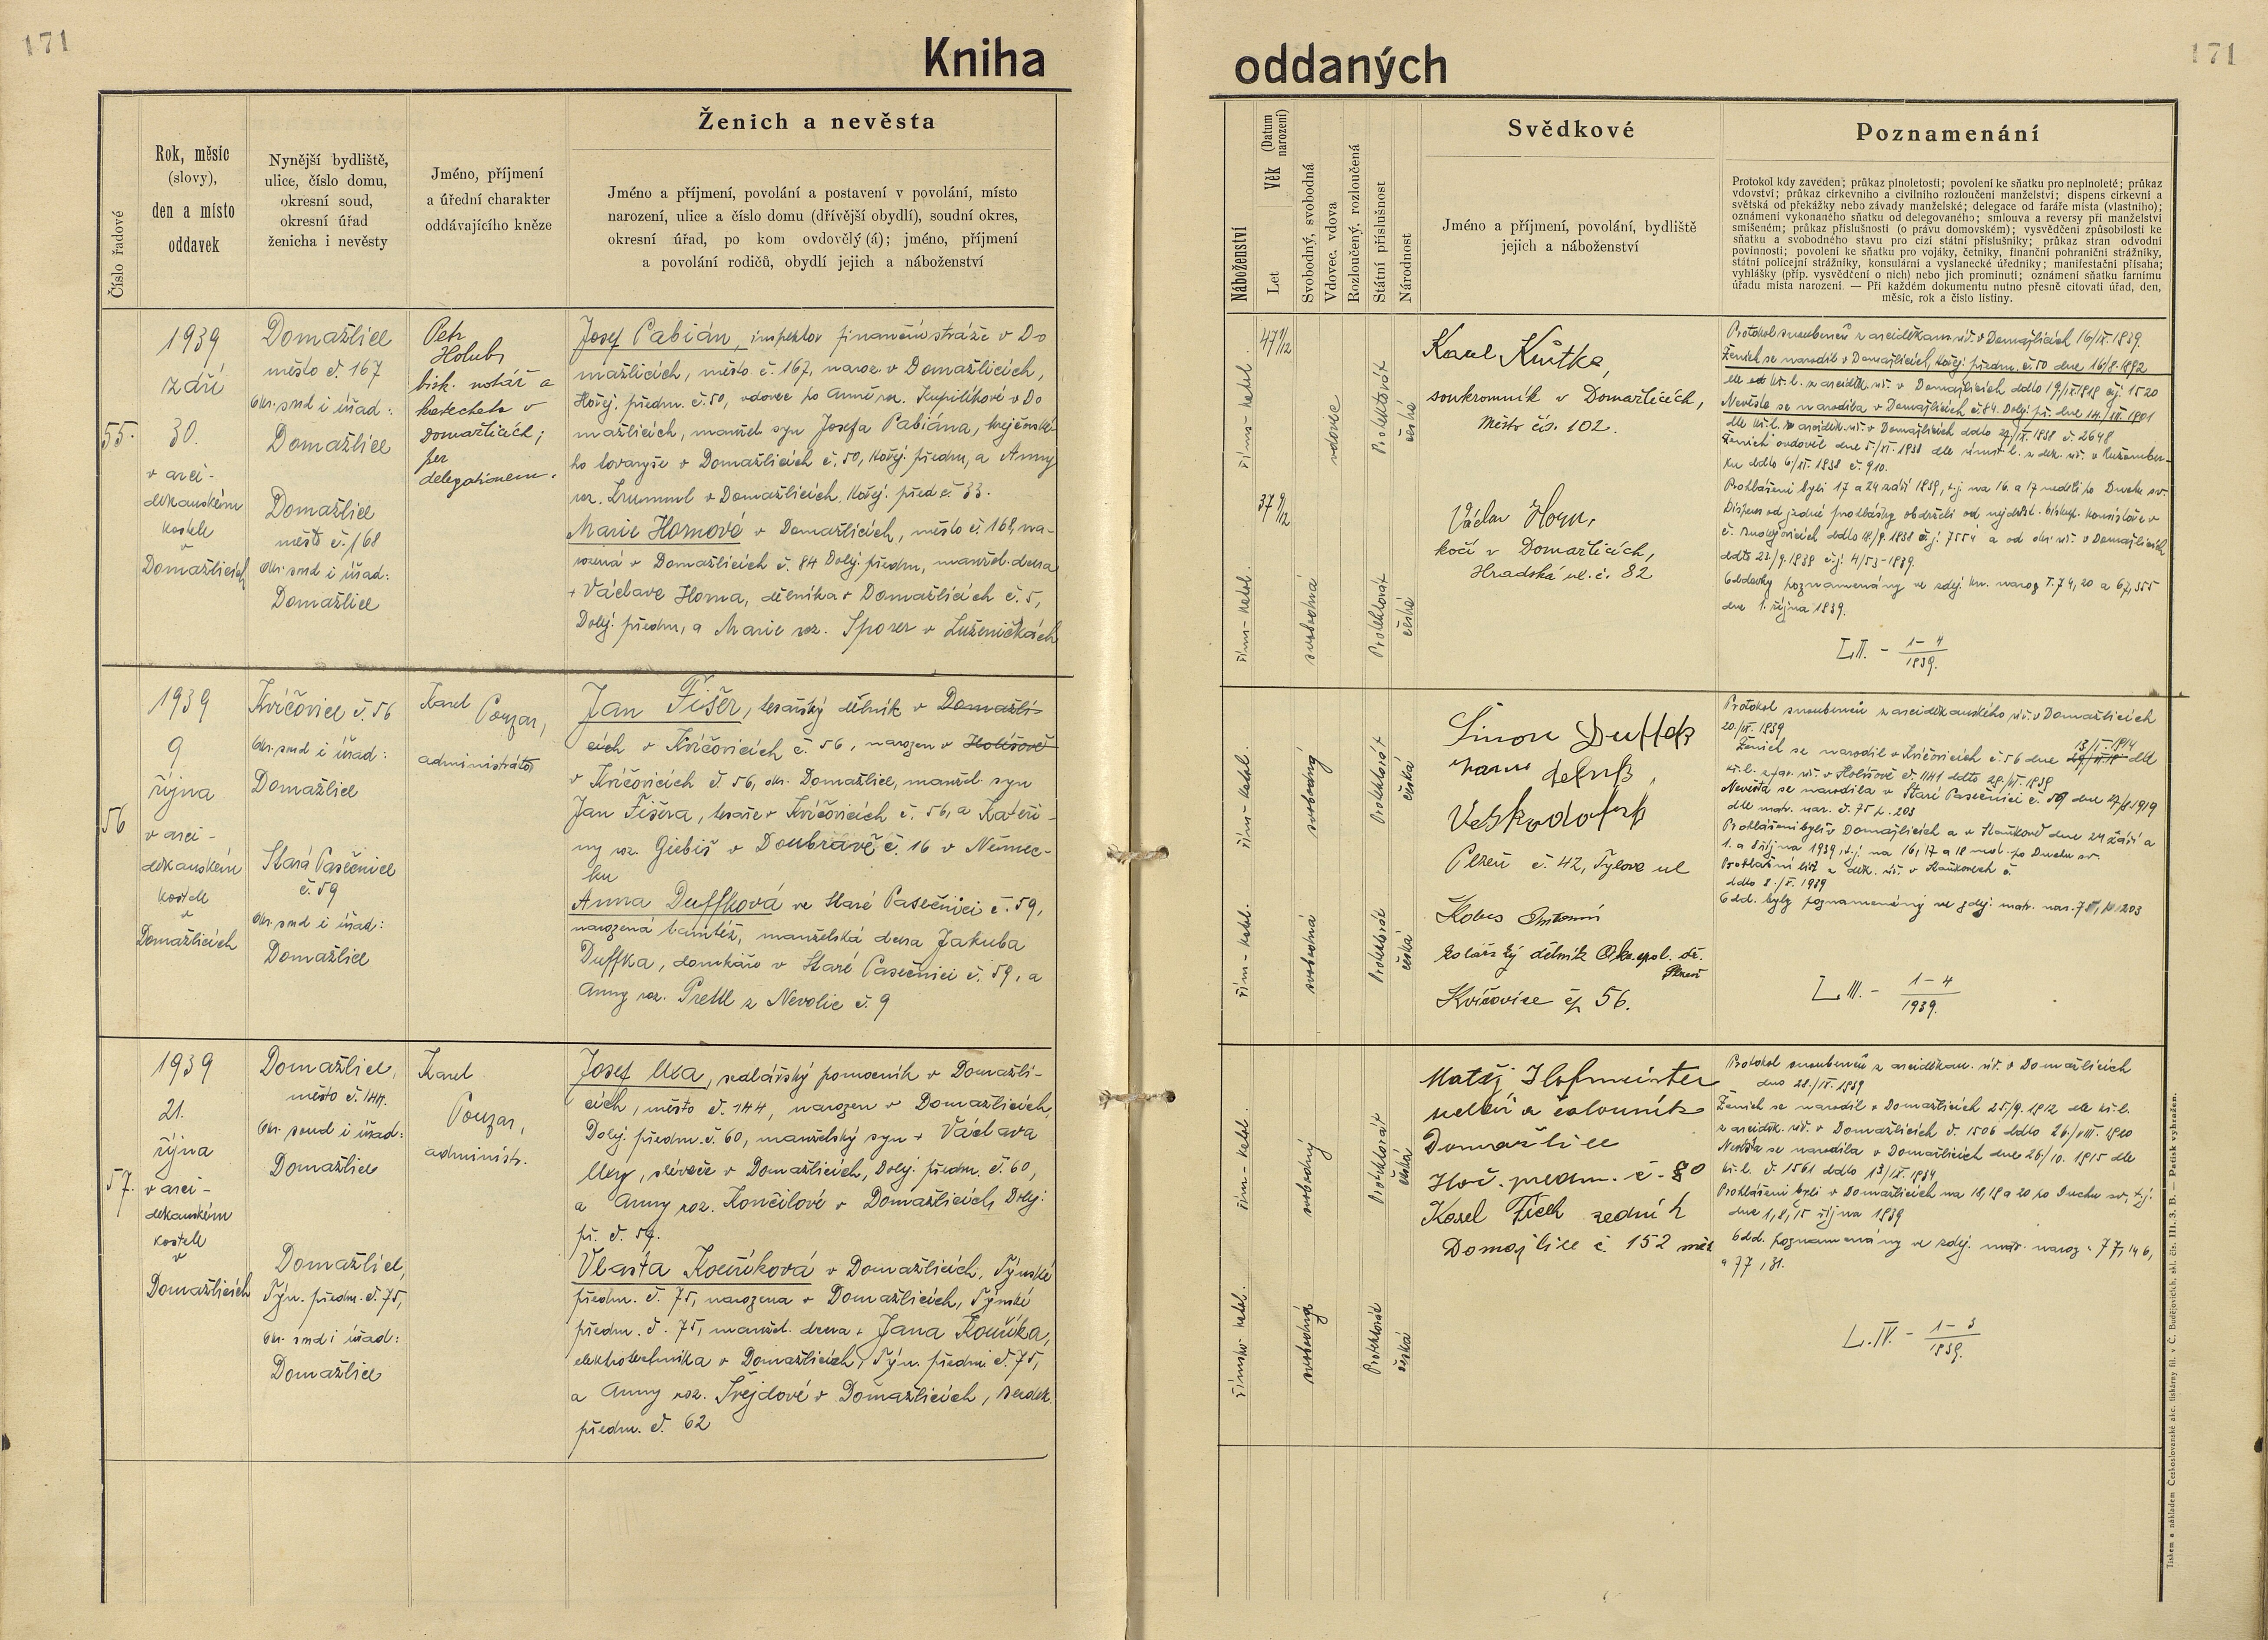 171
Kniha
Číslo řadové
Rok, měsíc
(slovy),
den a místo
oddavek
Nynější bydliště,
ulice, číslo domu,
okresní soud,
okresní úřad
ženicha i nevěsty
Jméno, příjmení
a úřední charakter
oddávajícího kněze
Ženich a nevěsta
Jméno a příjmení, povolání a postavení v povolání, místo
narození, ulice a číslo domu (dřívější obydlí), soudní okres,
okresní úřad, po kom ovdovělý (á); jméno, příjmení
a povolání rodičů, obydlí jejich a náboženství
55.
1939
září
30.
v arci-
děkanském
kostele
v
Domažlicích
Domažlice
město č. 167
Okr. soud i úřad:
Domažlice
Domažlice
město č. 168
Okr. soud i úřad:
Domažlice
Petr
Holub,
bisk. notář a
katecheta v
Domažlicích;
per
delegationem.
Josef Pabián, inspektor finanční stráže v Do
mažlicích, město č. 167, naroz. v Domažlicích,
Hořej. předm. č. 50, vdovec po Anně roz. v Do
mažlicích, manžel. syn Josefa Pabiána, krejčovské-
ho tovaryše v Domažlicích č. 50, Hořej. předm, a Anny
roz. v Domažlicích, Hořej. před č. 33.
Marie Hornová v Domažlicích, město č. 168, na-
rozená v Domažlicích č. 84 Dolej. předm, manžel. dcera
+ Václava Horna, dělníka v Domažlicích č. 5,
Dolej. předm, a Marie roz. Sporer v Luženičkách
56
1939
9
října
v arci-
děkanském
kostele
v
Domažlicích
Kvíčovice č. 56
Okr. soud i úřad:
Domažlice
Stará Pasečnice
č. 59
Okr. soud i úřad:
Domažlice
Karel
Pouzar,
administrátor
Jan Fišer, tesařský dělník v Domažli-
cích v Kvíčovicích č. 56, narozen v Holišově
v Kvíčovicích č. 56, okr. Domažlice, manžel. syn
Jan Fišera, tesaře v Kvíčovicích č. 56, a Kateři-
ny roz. Giebiš v Doubravě č. 16 v Němec-
ku
Anna Duffková ve Staré Pasečnici č. 59,
narozená tamtéž, manželská dcera Jakuba
Duffka, domkáře v Staré Pasečnici č. 59, a
Anny roz. Prettl z Nevolic č. 9
57.
1939
21.
října
v arci-
děkanském
kostele
v
Domažlicích
Domažlice,
město č. 144.
Okr. soud i úřad:
Domažlice
Domažlice,
Týn. předm. č. 75,
Okr. soud i úřad:
Domažlice
Karel
Pouzar,
administr.
Josef Uxa, sedlářský pomocník v Domažli-
cích, město č. 144, narozen v Domažlicích,
Dolej. předm. č. 60, manželský syn + Václava
Uxy, slévače v Domažlicích, Dolej. předm. č. 60,
a Anny roz. Končilové v Domažlicích, Dolej.
př. č. 59.
Vlasta Kocňková v Domažlicích, Týnské
předm. č. 75, narozena v Domažlicích, Týnské
předm. č. 75, manžel. dcera + Jana
elektrotechnika v Domažlicích, Týn. předm č. 75,
a Anny roz. Švejdové v Domažlicích,
předm. č. 62
oddaných
171
Náboženství
Věk (Datum narození)
Let
Svobodný, svobodná
Vdovec, vdova
Rozloučený, rozloučená
Státní příslušnost
Národnost
Svědkové
Jméno a příjmení, povolání, bydliště
jejich a náboženství
Poznamenání
Protokol kdy zaveden; průkaz plnoletosti; povolení ke sňatku pro neplnoleté; průkaz
vdovství; průkaz církevního a civilního rozloučení manželství; dispens církevní a
světská od překážky nebo závady manželské; delegace od faráře místa (vlastního);
oznámení vykonaného sňatku od delegovaného; smlouva a reversy při manželství
smíšeném; průkaz příslušnosti (o právu domovském); vysvědčení způsobilosti ke
sňatku a svobodného stavu pro cizí státní příslušníky; průkaz stran odvodní
povinnosti; povolení ke sňatku pro vojáky, četníky, finanční pohraniční strážníky,
státní policejní strážníky, konsulární a vyslanecké úředníky; manifestační přísaha;
vyhlášky (příp. vysvědčení o nich) nebo jich prominutí; oznámení sňatku farnímu
úřadu místa narození. — Při každém dokumentu nutno přesně citovati úřad, den,
měsíc, rok a číslo listiny.
řím-katol.
47 1/12
vdovec
Protektorát
česká
řím-katol.
37 9/12
svobodná
Protektorát
česká
Karel
soukromník v Domažlicích,
Město čís. 102.
Václav Horn,
kočí v Domažlicích,
Hradská ul. č. 82
Protokol snoubenců z arciděkan. úř. v Domažlicích 16/IX. 1939.
Ženich se narodil v Domažlicích, Hořej. předm. č. 50 dne 16/8. 1892
dle kř. l. z arciděk. úř. v Domažlicích ddto čj. 1520
Nevěsta se narodila v Domažlicích č. 84. Dolej. př. dne 14./XII. 1901
dle kř. l. z arciděk. úř. v Domažlicích ddto č. 2648
Ženich ovdověl dne 5./XI. 1938 dle úmrt. l. z děk. úř. v Ružomber-
ku ddto 6/XI. 1938 č. 910.
Prohlášeni byli 17 a 24 září 1939, t.j. na 16. a 17 neděli po Duchu sv.
Dispens od jedné prohlášky obdrželi od nejdůst. biskup. konsistoře v
č. Budějovicích čj. 7554 a od okr. úř. v Domažlicích
ddto 23./9. 1939 čj. 4/53-1939.
Oddavky poznamenány ve zdej. kn. naroz T. 74, 20 a 67, 355
dne 1. října 1939.
L II. - 1-4/1939.
řím-katol.
svobodný
Protektorát
česká
řím-katol.
svobodná
Protektorát
česká
Šimon Duffek
Plzeň č. 42, Tylova ul
Kobes Antonín
kolářský dělník
Plzeň
Kvíčovice čp 56.
Protokol snoubenců z arciděkanského úř. v Domažlicích
20./IX. 1939
Ženich se narodil v Kvíčovicích č. 56 dne 13/II. 1914 dle
kř. l. z far. úř. v Holišově č. 1141 ddto 29./VI. 1939
Nevěsta se narodila v Staré Pasečnici č. 59 dne
dle matr. nar. č. 75 p. 203
Prohlášeni byli v Domažlicích a v Staňkově dne 24 září a
1. a 8 října 1939, t.j. na 16, 17 a 18 ned. po Duchu sv.
Prohlášní list z děk. úř. v Staňkově č.
ddto 8./X. 1939
Odd. byly poznamenány ve zdej. matr. nar.
L III. - 1-4/1939.
řím-katol.
svobodný
Protektorát
česká
římsko-katol.
svobodná
Protektorát
česká
Matěj Hofmeister
sedlář a čalouník
Domažlice
Hoř. předm. č. 80
Karel Fišch zedník
Domažlice č. 152 měs
Protokol snoubenců z arciděkan. úř. v Domažlicích
dne 28./IX. 1939
Ženich se narodil v Domažlicích 25/9. 1912 dle kř. l.
z arciděk. úř. v Domažlicích č. 1506 ddto
Nevěsta se narodila v Domažlicích dne 26/10. 1915 dle
kř. l. č. 1561 ddto
Prohlášeni byli v Domažlicích na 18, 19 a 20 po Duchu sv, t.j.
dne 1, 8, 15 října 1939
Odd. poznamenány ve zdej. matr. naroz. 77, 146,
a 77, 81.
L. IV. - 1-3/1939.
Tiskem a nákladem Českoslovanské akc. tiskárny fil. v Č. Budějovicích, skl. čís. III. 3. B. — Patisk vyhražen.